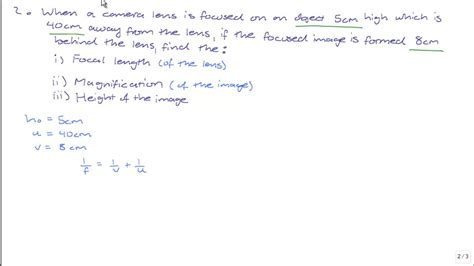 2. When a camera lens is focused on an object 5cm high which is
40cm away from the lens, if the focused image is formed 8cm
behind the lens, find the:
i) Focal length (of the lens)
ii) Magnification (of the image)
iii) Height of the image
ho = 5cm
u = 40cm
v = 8cm
1/f = 1/v + 1/u
2 / 3